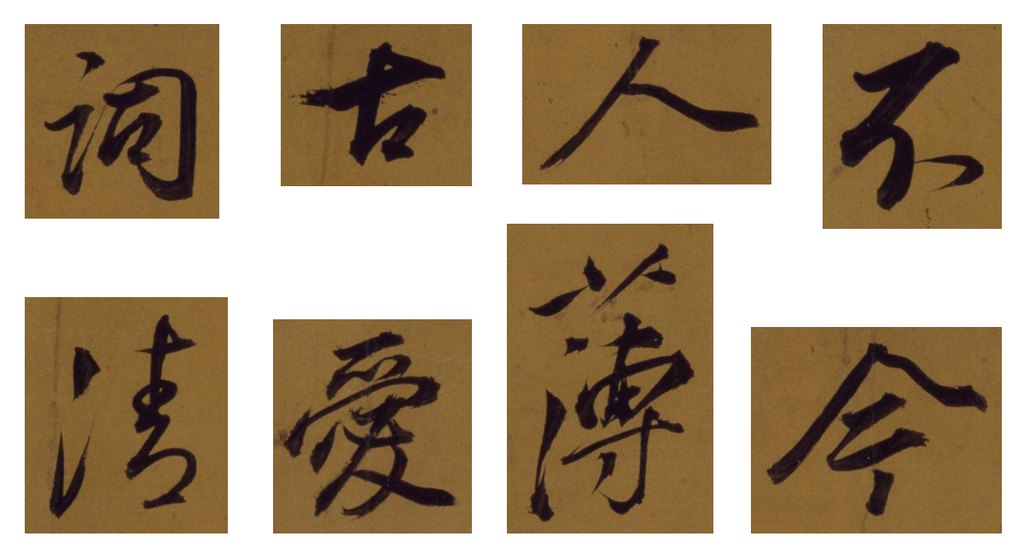 詞古人不
清愛薄今